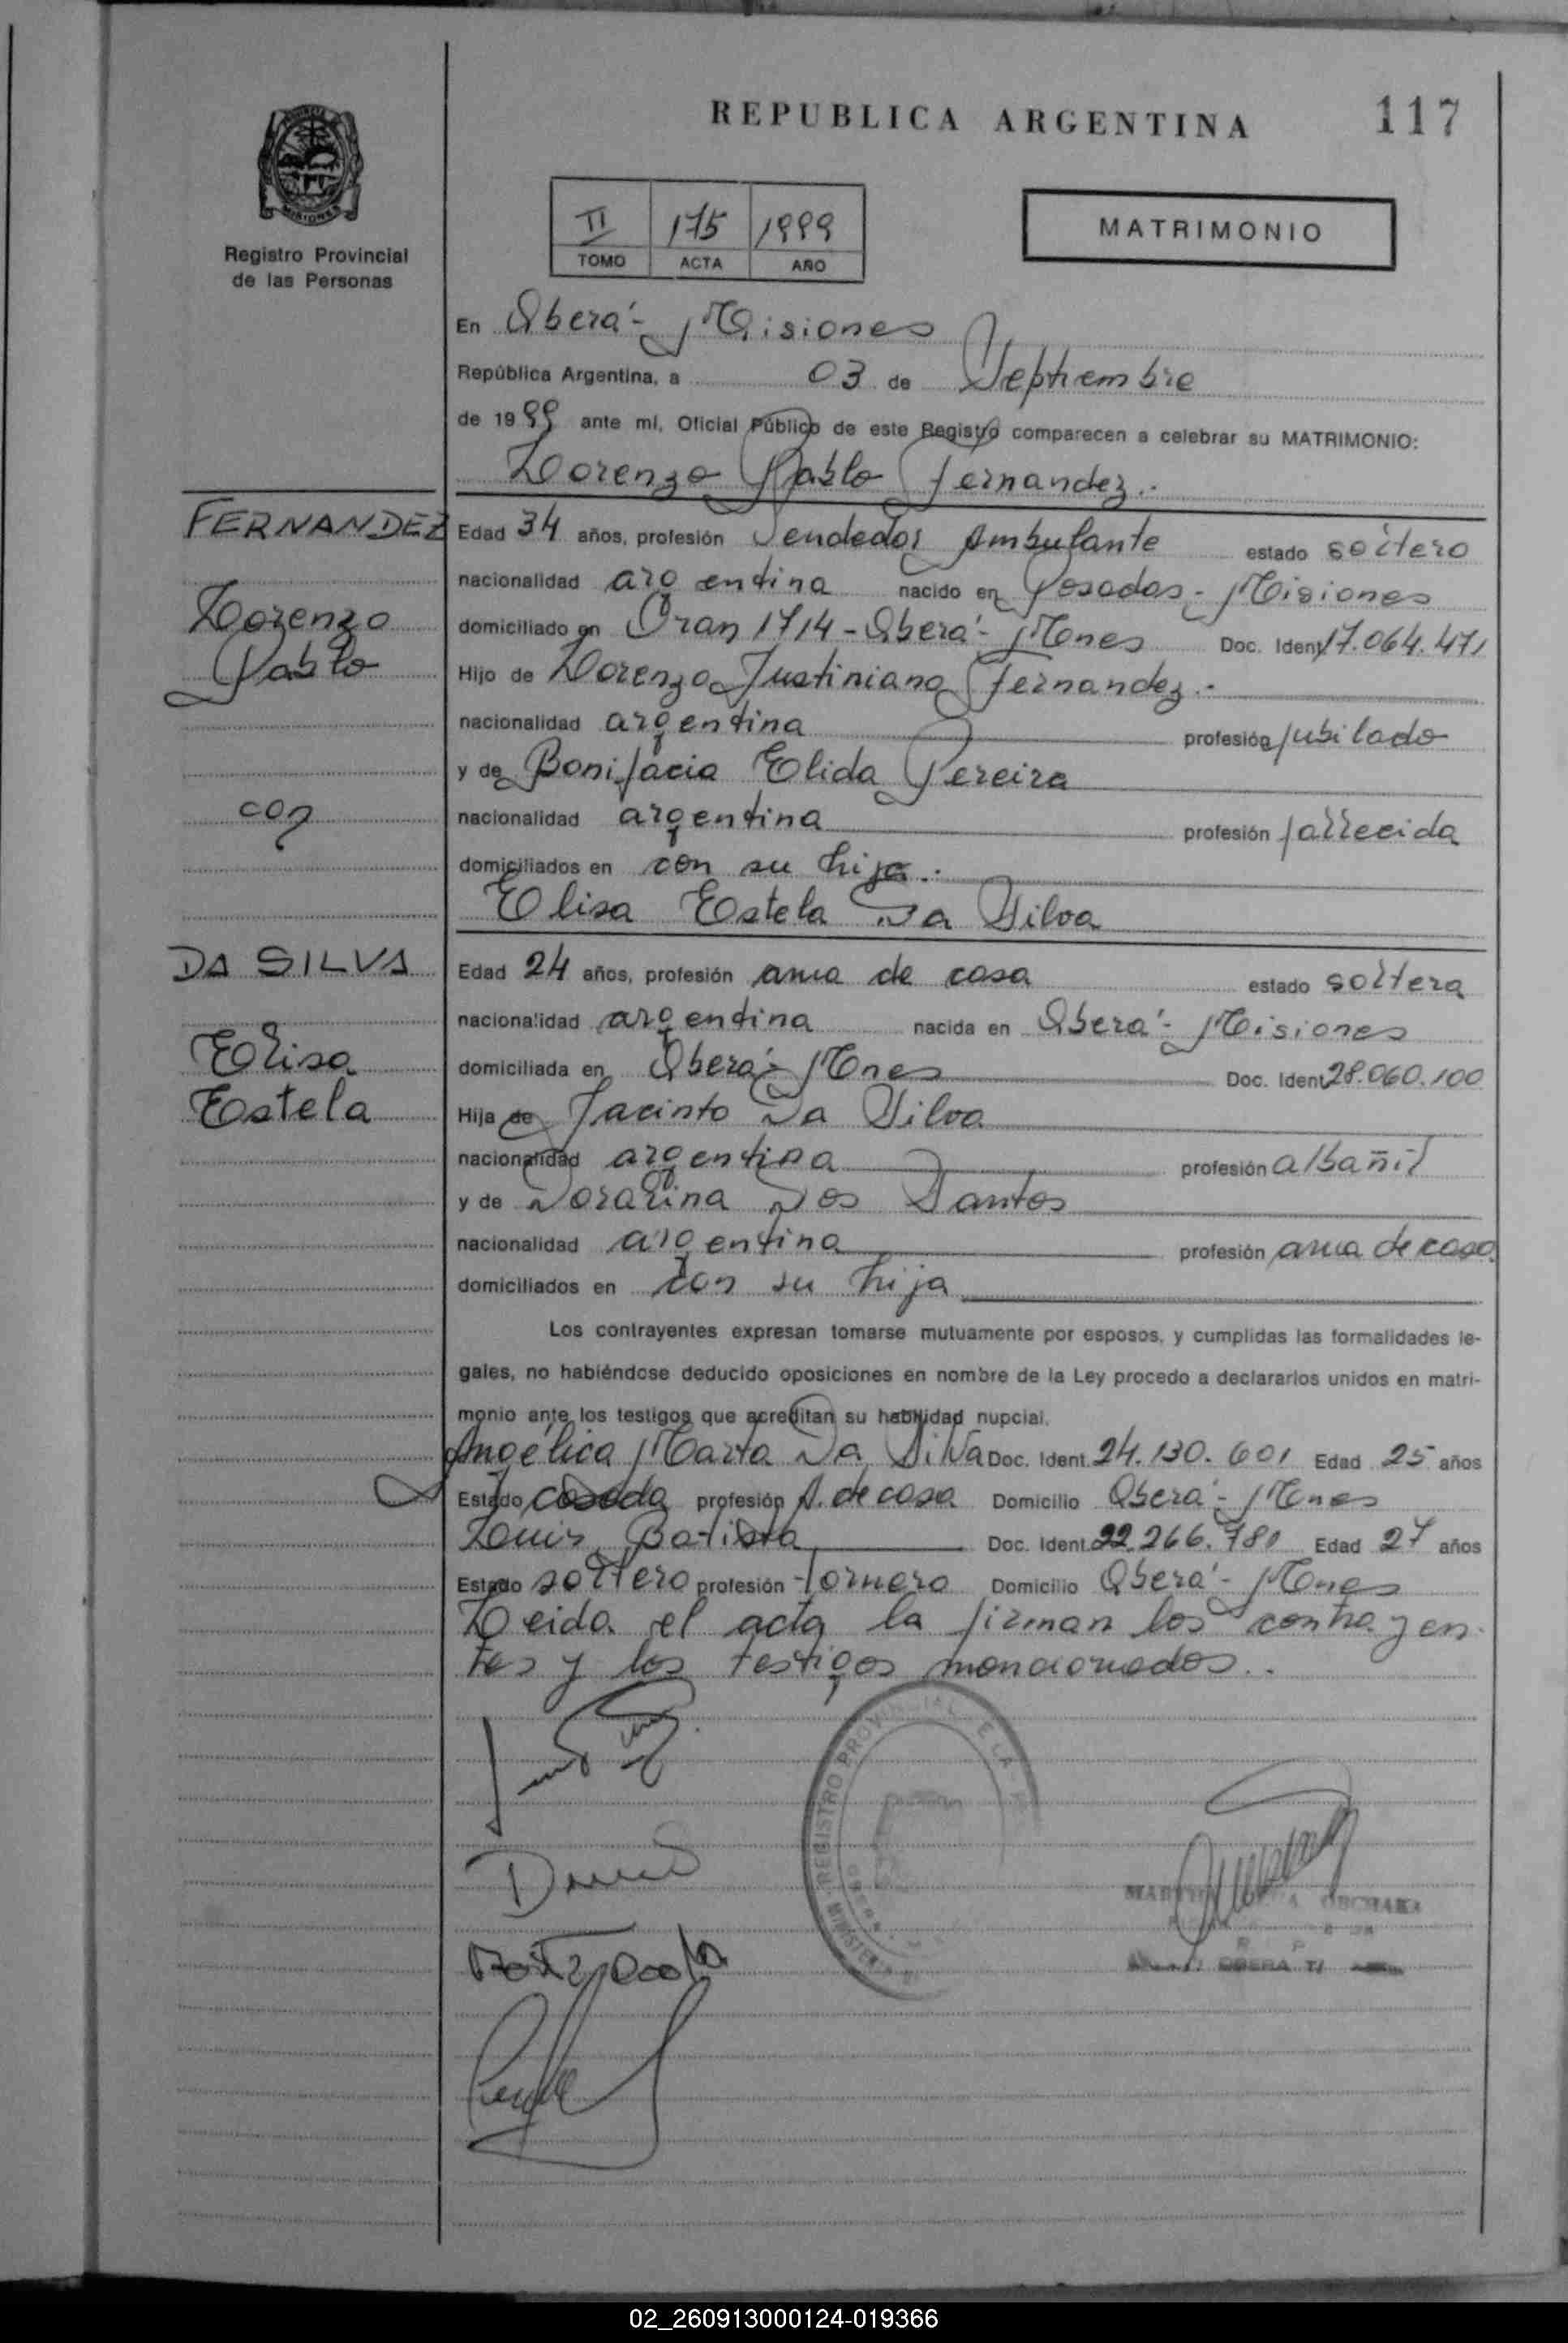 REPUBLICA ARGENTINA
117
MISIONES
Registro Provincial
de las Personas
II 175 1999
TOMO ACTA AÑO
MATRIMONIO
En Oberá - Misiones
República Argentina, a 03 de Septiembre
de 1999 ante mí, Oficial Público de este Registro comparecen a celebrar su MATRIMONIO:
Lorenzo Pablo Fernandez.-
FERNANDEZ
Lorenzo
Pablo
con
DA SILVA
Elisa
Estela
Edad 34 años, profesión Vendedor Ambulante estado soltero
nacionalidad argentina nacido en Posadas - Misiones
domiciliado en Oran 1714 - Oberá - Mnes Doc. Ident 17.064.471
Hijo de Lorenzo Justiniano Fernandez.-
nacionalidad argentina profesión jubilado
y de Bonifacia Elida Pereira
nacionalidad argentina profesión fallecida
domiciliados en con su hijo.-
Elisa Estela Da Silva
Edad 24 años, profesión ama de casa estado soltera
nacionalidad argentina nacida en Oberá - Misiones
domiciliada en Oberá - Mnes Doc. Ident 28.060.100
Hija de Jacinto Da Silva
nacionalidad argentina profesión albañil
y de Doralina Dos Santos
nacionalidad argentina profesión ama de casa.
domiciliados en con su hija
Los contrayentes expresan tomarse mutuamente por esposos, y cumplidas las formalidades le-
gales, no habiéndose deducido oposiciones en nombre de la Ley procedo a declararlos unidos en matri-
monio ante los testigos que acreditan su habilidad nupcial.
Angélica Marta Da Silva Doc. Ident. 24.130.601 Edad 25 años
Estado casada profesión A. de casa Domicilio Oberá - Mnes
Luis Batista Doc. Ident. 22.266.781 Edad 27 años
Estado soltero profesión Tornero Domicilio Oberá - Mnes
Leida el acta la firman los contrayen-
tes y los testigos mencionados.-
REGISTRO PROVINCIAL DE LA
OBERA
02_260913000124-019366